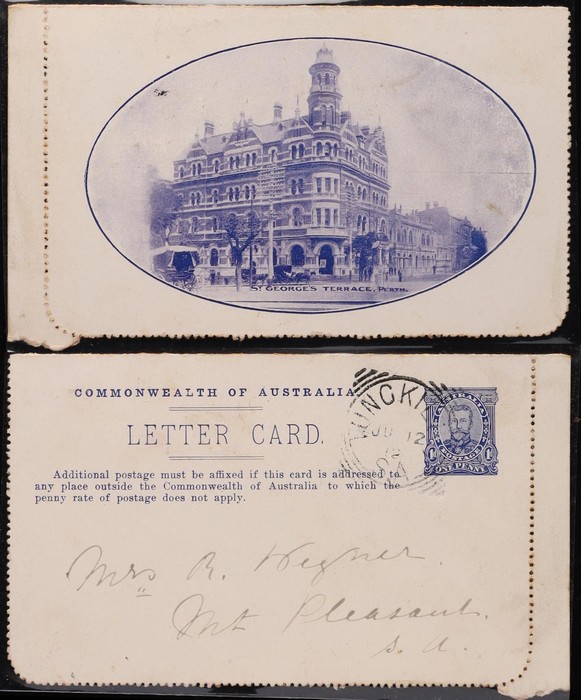 St GEORGE'S TERRACE, PERTH.
COMMONWEALTH OF AUSTRALIA
LETTER CARD.
Additional postage must be affixed if this card is addressed to
any place outside the Commonwealth of Australia to which the
penny rate of postage does not apply.
UNCKI
JU 12
AUSTRALIA
POSTAGE
ONE PENNY
Mrs R. Wegner.
Mt Pleasant.
S. A.